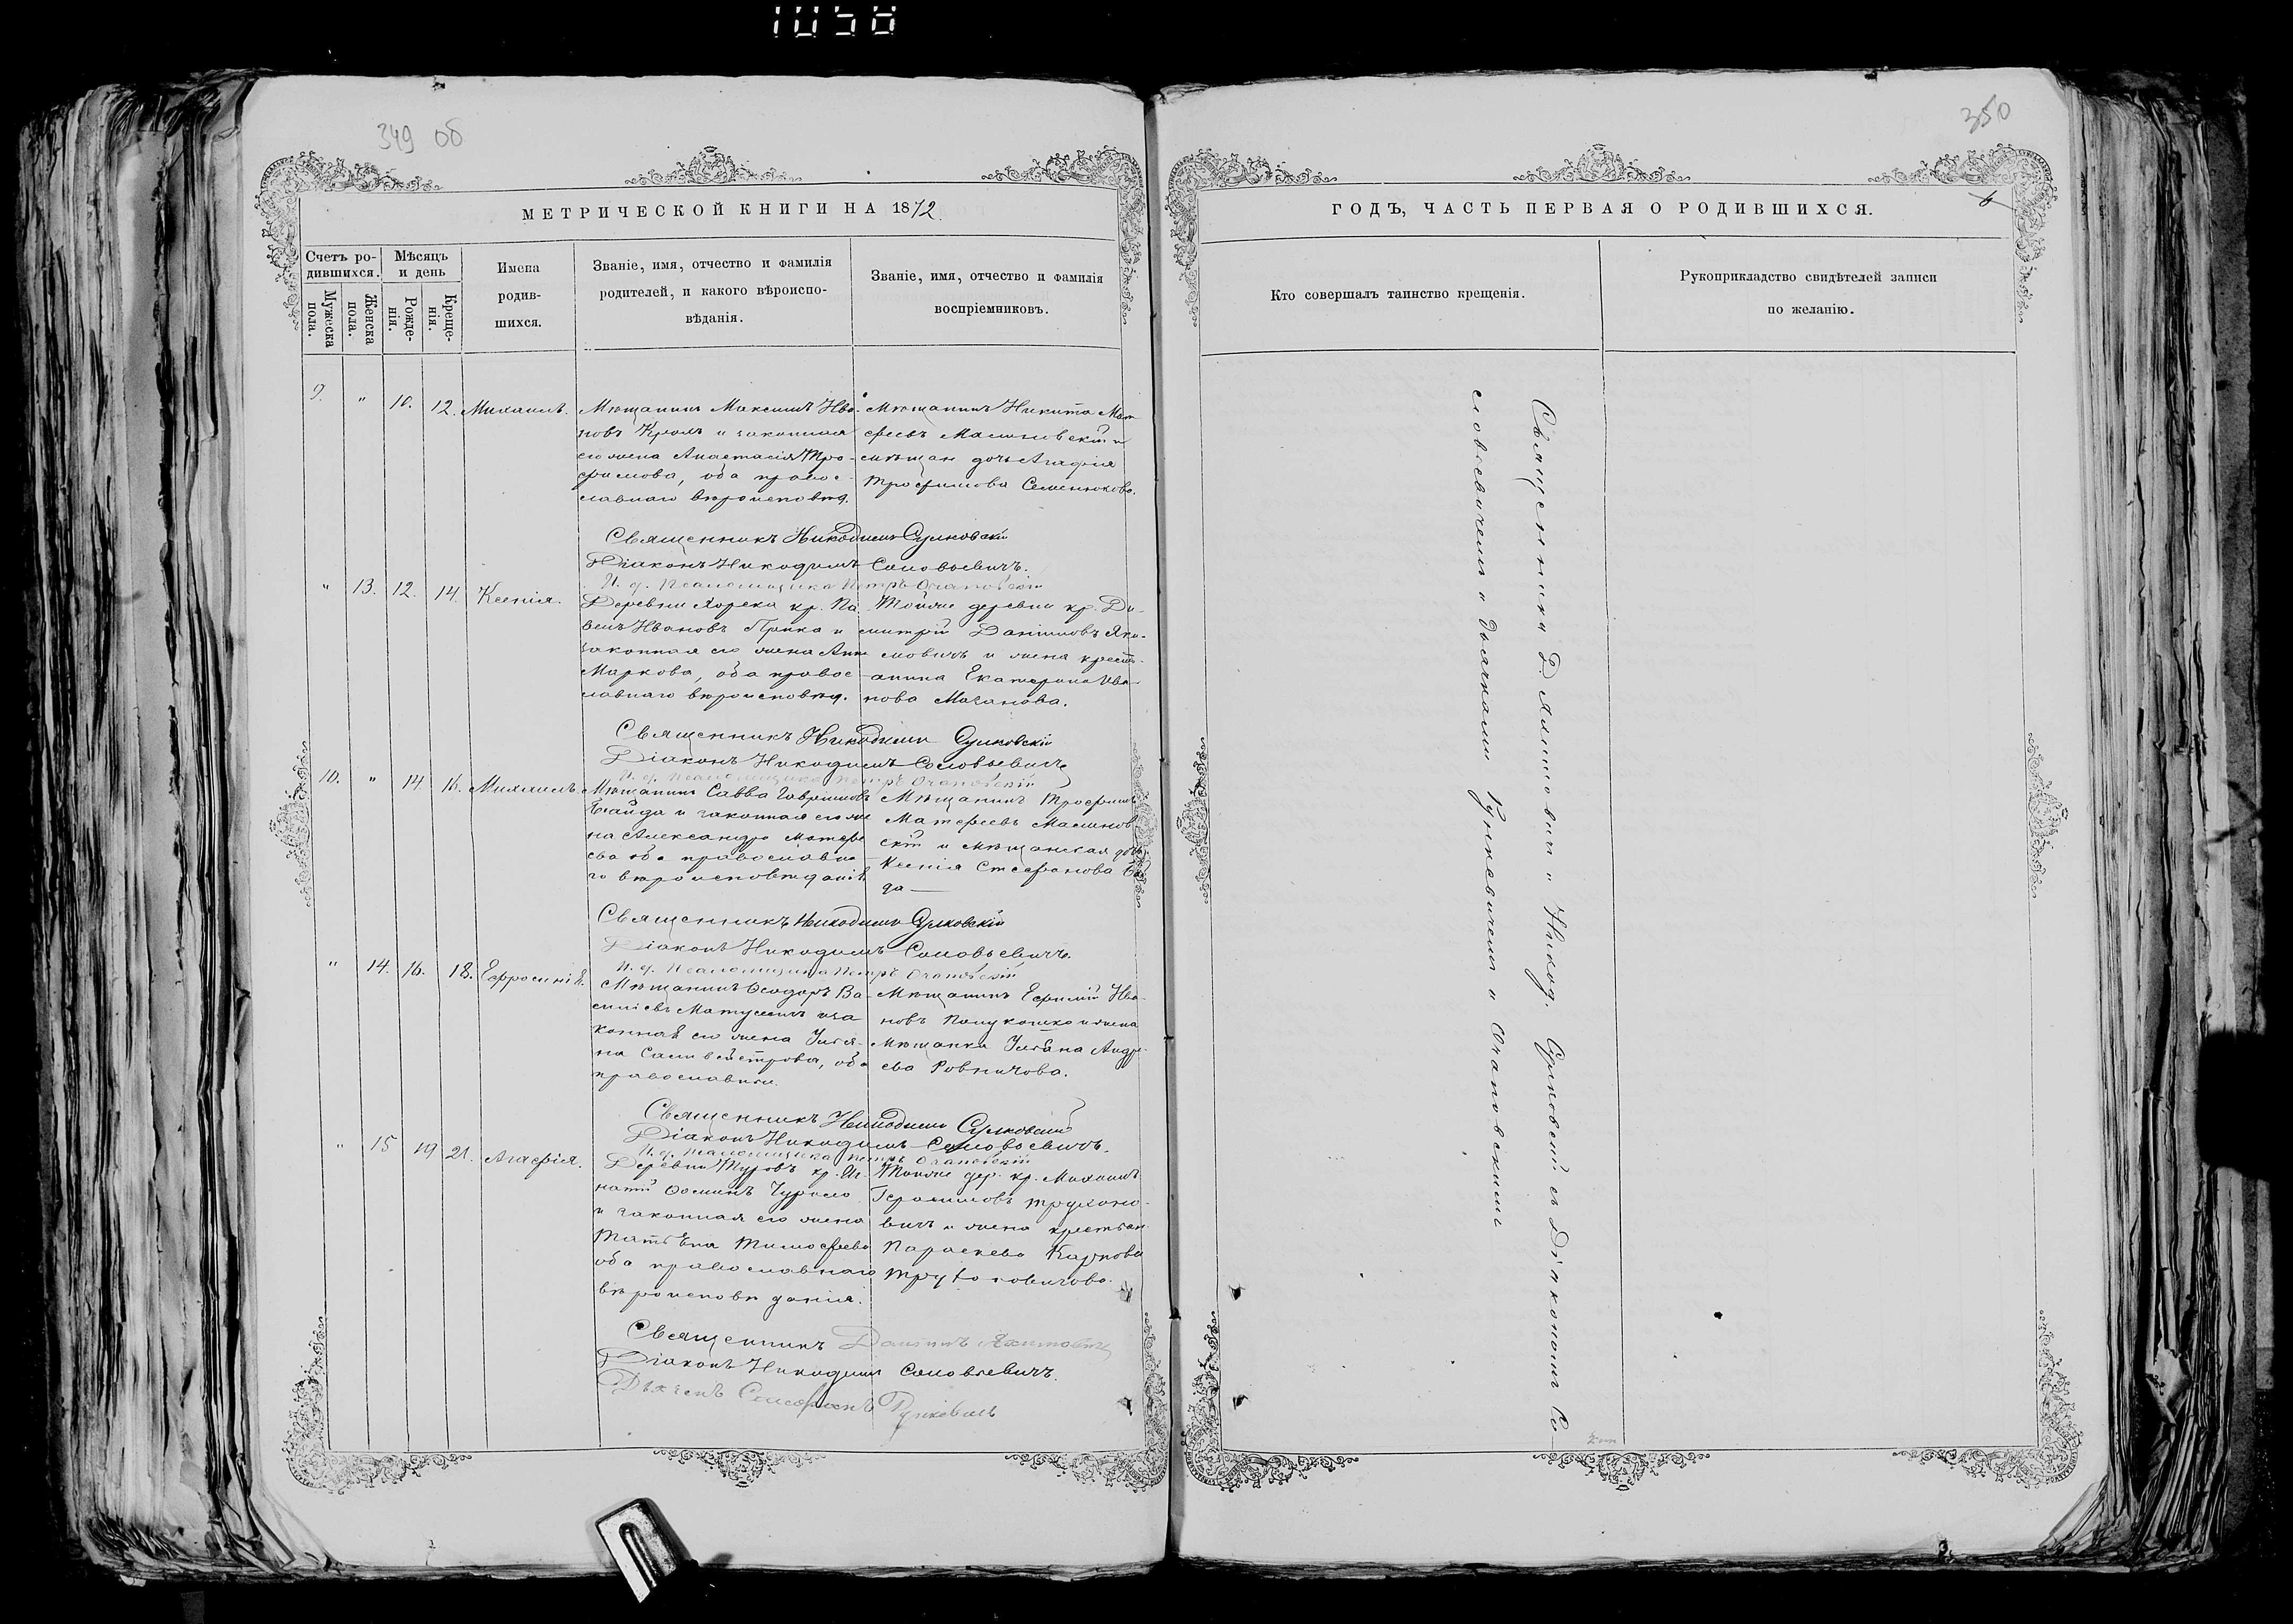 1058
349 об
МЕТРИЧЕСКОЙ КНИГИ НА 1872.
Счетъ ро-
дившихся.
Мужеска
пола.
Женска
пола.
Мѣсяцъ
и день
Рожде-
нія.
Креще-
нія.
Имена
родив-
шихся.
Званіе, имя, отчество и фамилія
родителей, и какого вѣроиспо-
вѣданія.
Званіе, имя, отчество и фамилія
воспріемниковъ.
9. " 10. 12. Михаилъ.
Мѣщанинъ Максимъ Ива-
новъ и законная
его жена Анастасія Тро-
фимова, оба правос-
лавнаго вѣроисповѣд.
Мѣщанинъ Никита Мат
феевъ Малиновскій и
мѣщан дочь Агафія
Трофимова Семенюкова.
Священникъ Никодимъ Сулковскій
Діаконъ Никодимъ Соловьевичъ.
И. д. Псаломщика Петръ
" 13. 12. 14. Ксенія.
Деревни кр. Па
велъ Ивановъ и
законная его жена Анна
Маркова, оба правос-
лавнаго вѣроисповѣд.
Тойже деревни кр. Ди-
митрій Даніиловъ Яки-
мовичъ и жена крестъ-
анина Екатерина Ива-
нова
Священникъ Никодимъ Сулковскій
Діаконъ Никодимъ Соловьевичъ
И. д. Псаломщика Петръ
10. " 14 16. Михаилъ.
Мѣщанинъ Савва Гавріиловъ
Байда и законная его же
на Александра Матфе
ева оба православна
го вѣроисповѣданія
Мѣщанинъ Трофимъ
Матфеевъ Малинов
скій и мѣщанская дочь
Ксенія Стефанова Бай
да
Священникъ Никодимъ Сулковскій
Діаконъ Никодимъ Соловьевичъ.
И. д. Псаломщика Петръ
" 14. 16. 18. Ефросинія.
Мѣщанинъ Ѳеодоръ Ва-
силіевъ и за
конная его жена Улія-
на Сильвейстрова, оба
православные.
Мѣщанинъ Ефимій Ива-
новъ и жена
мѣщанка Уліяна Андре-
ева
Священникъ Никодимъ Сулковскій
Діаконъ Никодимъ Соловьевичъ.
И. д. Псаломщика Петръ
" 15 19 21. Агафія.
Деревни Туровъ кр. Иг-
натій Ѳоминъ
и законная его жена
Татіана Тимофеева
оба православнаго
вѣроисповѣданія.
Тойже дер. кр. Михаилъ
Герасимовъ Трухоно-
вичъ и жена крестьян.
Параскева Карпова
Трухоновичова.
Священникъ Даніилъ Яхимовичъ
Діаконъ Никодимъ Соловьевичъ.
Дьячекъ Ксенофонтъ Рункевичъ
350
ГОДЪ, ЧАСТЬ ПЕРВАЯ О РОДИВШИХСЯ.
6
Кто совершалъ таинство крещенія.
Рукоприкладство свидѣтелей записи
по желанію.
Священники Д. Яхимовичъ и Никод. Сулковскій съ Діакономъ Со-
ловьевичемъ и дьячками Рункевичемъ и